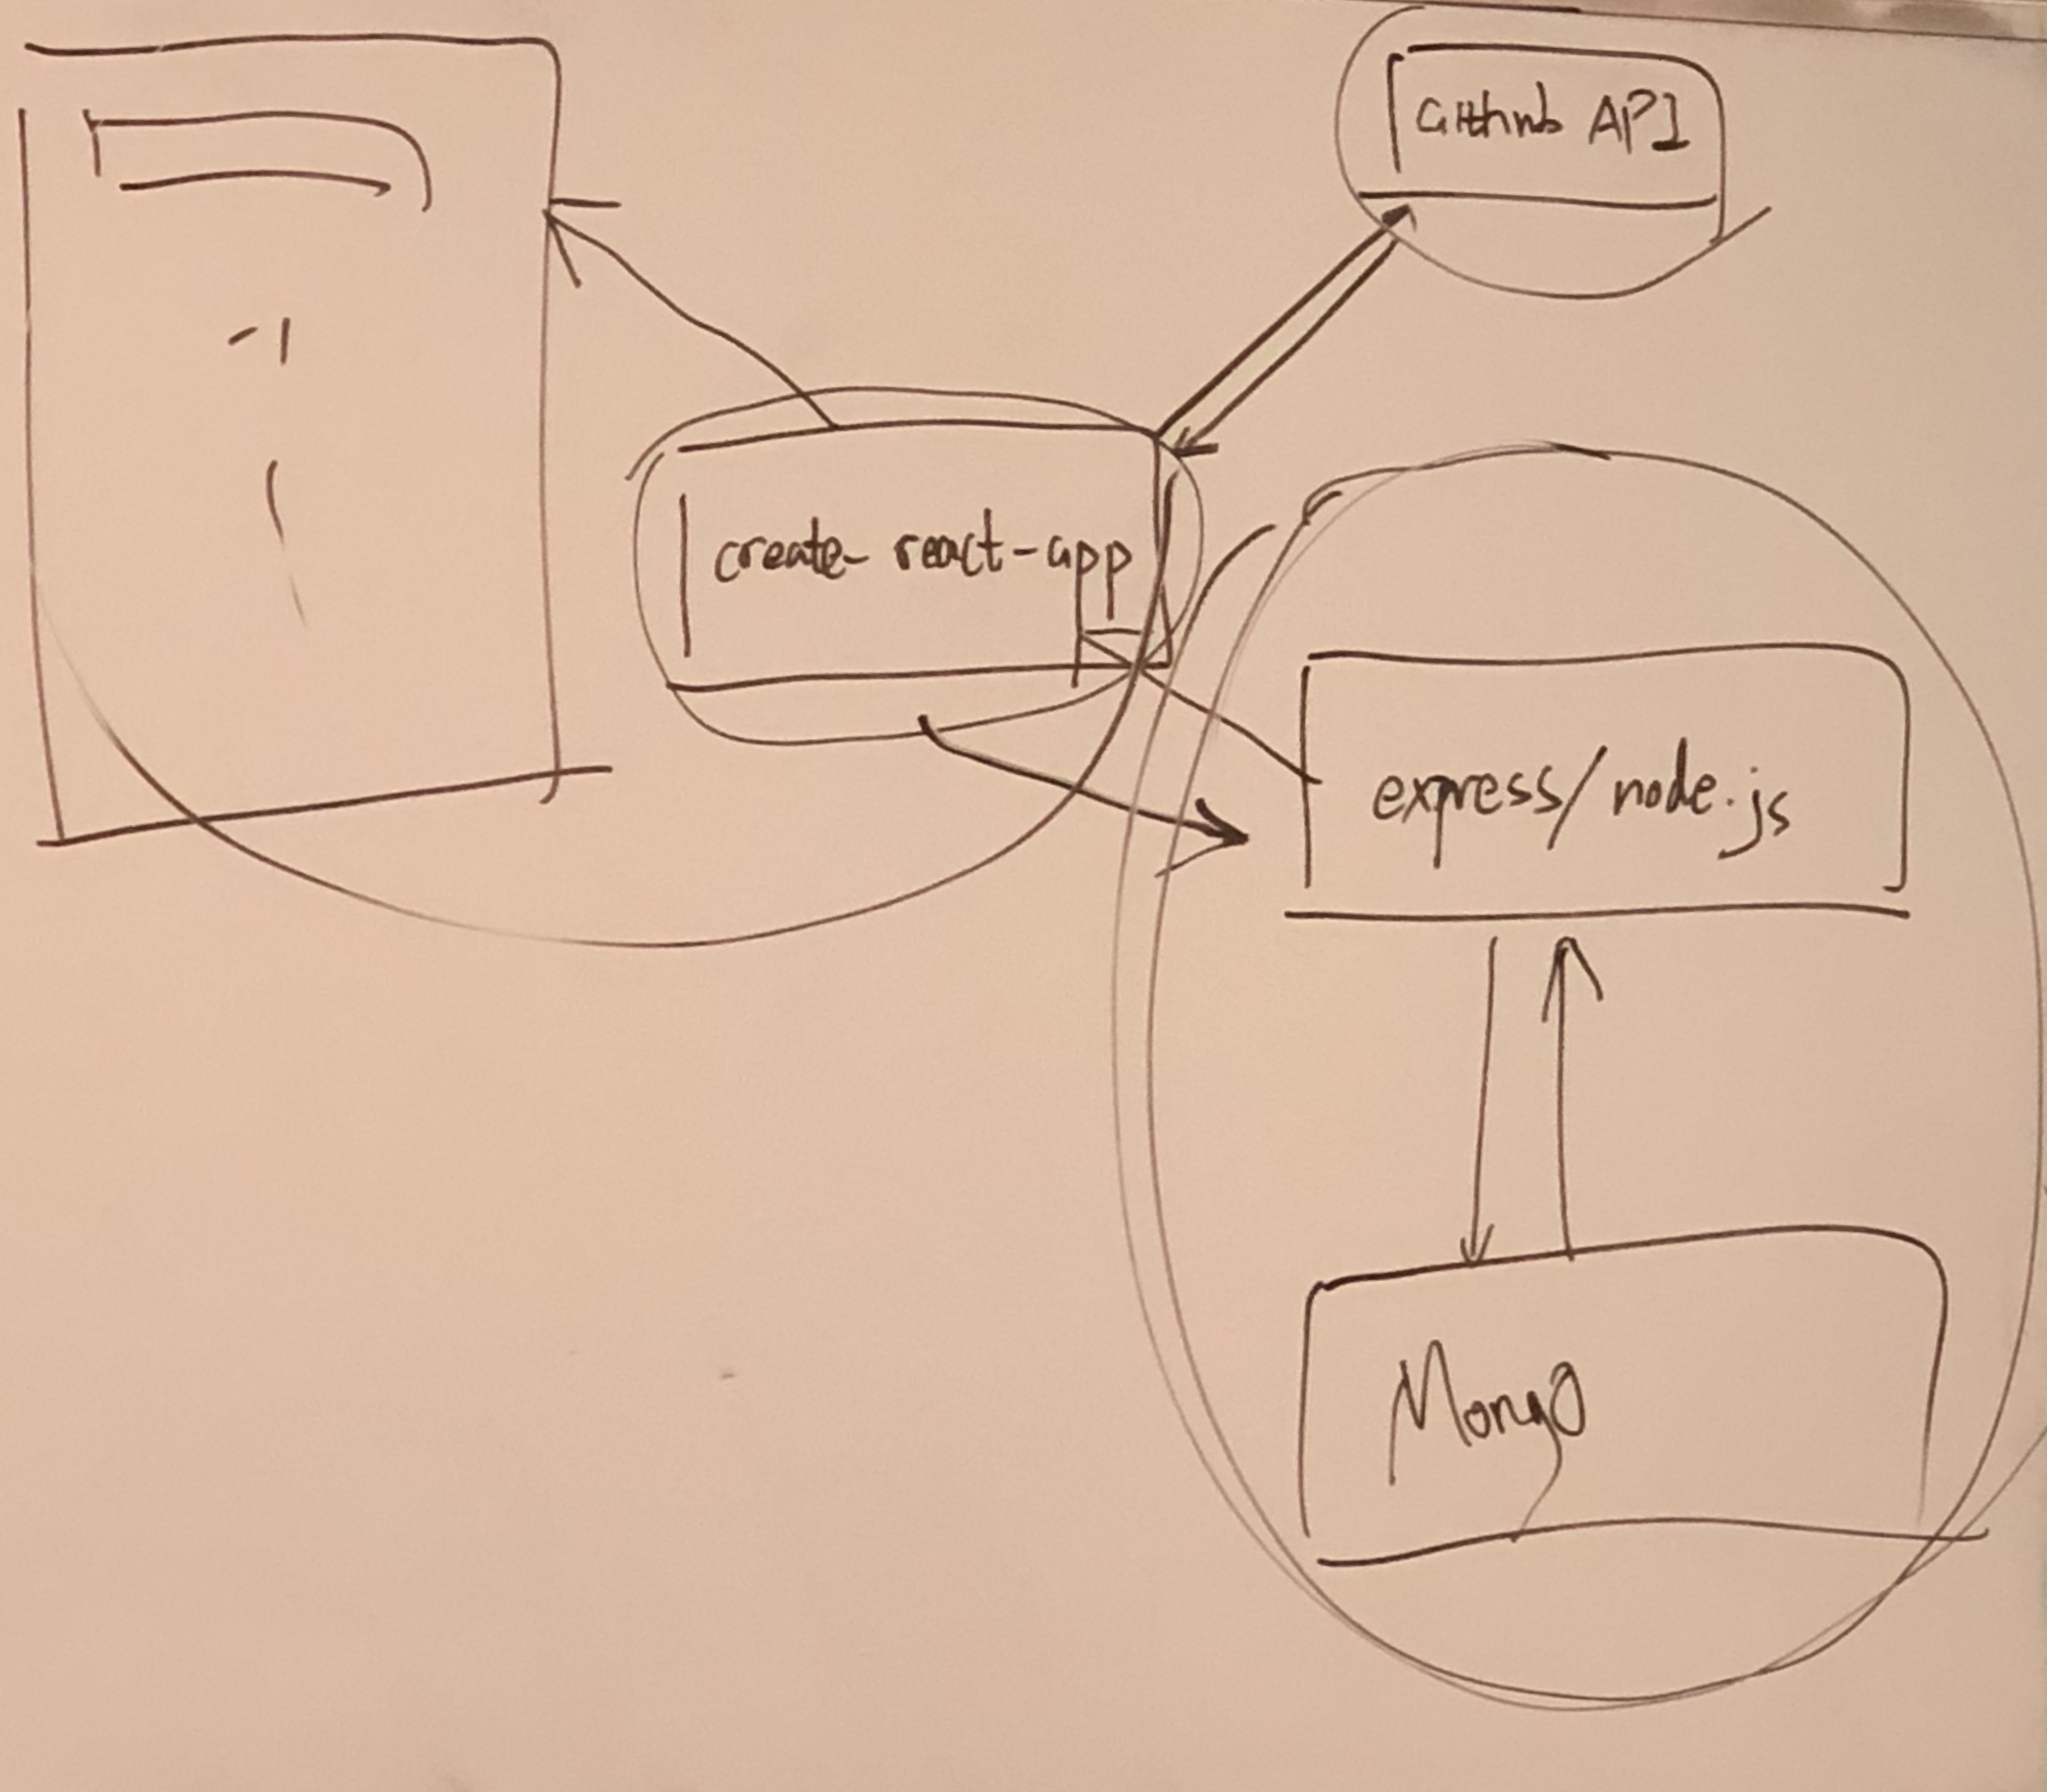 Github API
create-react-app
express/node.js
Mongo